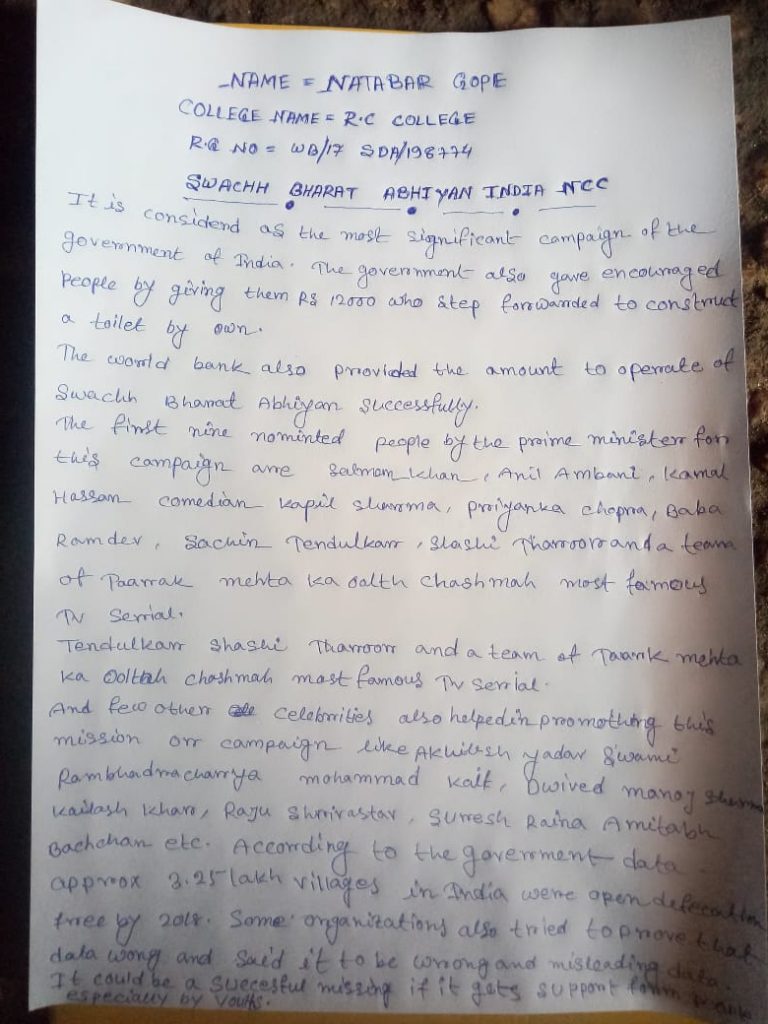 NAME = NATABAR GOPE
COLLEGE NAME = R.C COLLEGE
R.G NO = WB/17 SDA/198774
SWACHH BHARAT ABHIYAN INDIA NCC
It is considerd as the most significant campaign of the
government of India. The government also gave encouraged
people by giving them RS 12000 who step forwarded to construct
a toilet by own.
The world bank also provided the amount to operate of
Swachh Bharat Abhiyan successfully.
The first nine nominted people by the prime minister for
this campaign are Salman khan, Anil Ambani, Kamal
Hassan comedian kapil sharma, priyanka chopra, Baba
Ramdev, Sachin Tendulkar, Slashi Tharoor and a team
of Taarrak mehta ka oolth chashmah most famous
TV Serrial.
Tendulkar Shashi Tharoor and a team of Taarik mehta
ka Ooltah chashmah most famous TV Serrial.
And few other celebrities also helped in promothing this
mission or campaign like Akhilesh yadav Swami
Rambhadracharya mohammad kaif, Dwived manoj sharma
kailash kharo, Raju Shrivastav, Suresh Raina Amitabh
Bachchan etc. According to the government data
approx 3.25 lakh villages in India were open defecation
free by 2018. Some organizations also tried to prove that
data wong and said it to be wrong and misleading data.
It could be a succesful missing if it gets support form
especially by youths.